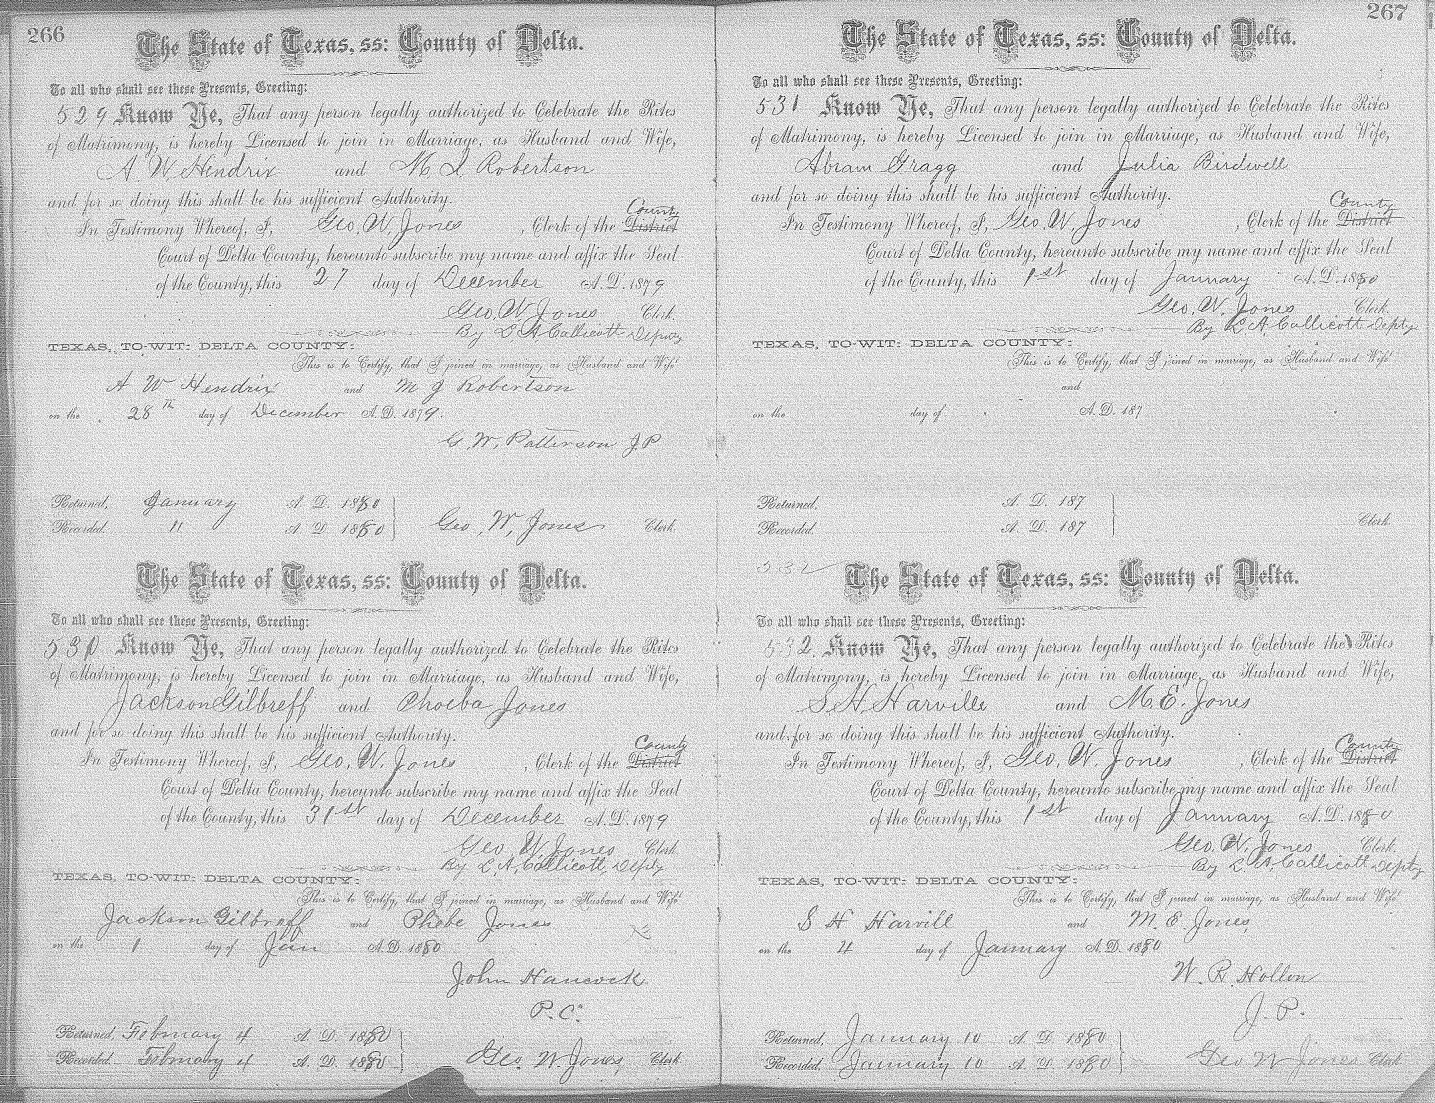 266
The State of Texas, ss: County of Delta.
To all who shall see these Presents, Greeting:
529 Know Ye, That any person legally authorized to Celebrate the Rites
of Matrimony, is hereby Licensed to join in Marriage, as Husband and Wife,
A W Hendrix and M I Robertson
and for so doing this shall be his sufficient Authority.
County
In Testimony Whereof, I, Geo. W. Jones, Clerk of the District
Court of Delta County, hereunto subscribe my name and affix the Seal
of the County, this 27 day of December A.D. 1879
Geo. W. Jones Clerk.
By L A Callicott Deputy
TEXAS, TO-WIT: DELTA COUNTY:
This is to Certify, that I joined in marriage, as Husband and Wife
A W Hendrix and M J Robertson
on the 28th day of December A.D. 1879.
G. W. Patterson J.P
Returned, January A. D. 1880
Recorded. " A. D. 1880 Geo, W, Jones Clerk
The State of Texas, ss: County of Delta.
To all who shall see these Presents, Greeting:
530 Know Ye, That any person legally authorized to Celebrate the Rites
of Matrimony, is hereby Licensed to join in Marriage, as Husband and Wife,
Jackson Gilbreff and Phoeba Jones
and for so doing this shall be his sufficient Authority.
County
In Testimony Whereof, I, Geo. W. Jones, Clerk of the District
Court of Delta County, hereunto subscribe my name and affix the Seal
of the County, this 31st day of December A.D. 1879
Geo W. Jones Clerk
By L. A. Callicott, Depty
TEXAS, TO-WIT: DELTA COUNTY:
This is to Certify, that I joined in marriage, as Husband and Wife
Jackson Gilbreff and Phebe Jones
on the 1 day of Jan A.D. 1880
John Hancock
P. C.
Returned, February 4 A. D. 1880
Recorded. February 4 A. D. 1880 Geo. W. Jones, Clerk
267
The State of Texas, ss: County of Delta.
To all who shall see these Presents, Greeting:
531 Know Ye, That any person legally authorized to Celebrate the Rites
of Matrimony, is hereby Licensed to join in Marriage, as Husband and Wife,
Abram Gragg and Julia Birdwell
and for so doing this shall be his sufficient Authority.
County
In Testimony Whereof, I, Geo. W. Jones, Clerk of the District
Court of Delta County, hereunto subscribe my name and affix the Seal
of the County, this 1st day of January A.D. 1880
Geo. W. Jones Clerk.
By L A Callicott Depty
TEXAS, TO-WIT: DELTA COUNTY:
This is to Certify, that I joined in marriage, as Husband and Wife
and
on the day of A.D. 187
Returned, A. D. 187
Recorded. A. D. 187 Clerk
532
The State of Texas, ss: County of Delta.
To all who shall see these Presents, Greeting:
532. Know Ye, That any person legally authorized to Celebrate the Rites
of Matrimony, is hereby Licensed to join in Marriage, as Husband and Wife,
S H Harville and M. E. Jones
and for so doing this shall be his sufficient Authority.
County
In Testimony Whereof, I, Geo. W. Jones, Clerk of the District
Court of Delta County, hereunto subscribe my name and affix the Seal
of the County, this 1st day of January A.D. 1880
Geo. W. Jones Clerk.
By L. A. Callicott Depty
TEXAS, TO-WIT: DELTA COUNTY:
This is to Certify, that I joined in marriage, as Husband and Wife
S H Harvill and M. E. Jones,
on the 4 day of January A.D. 1880
W. R. Hollon
J. P.
Returned, January 10 A. D. 1880
Recorded. January 10 A. D. 1880 Geo W Jones Clerk